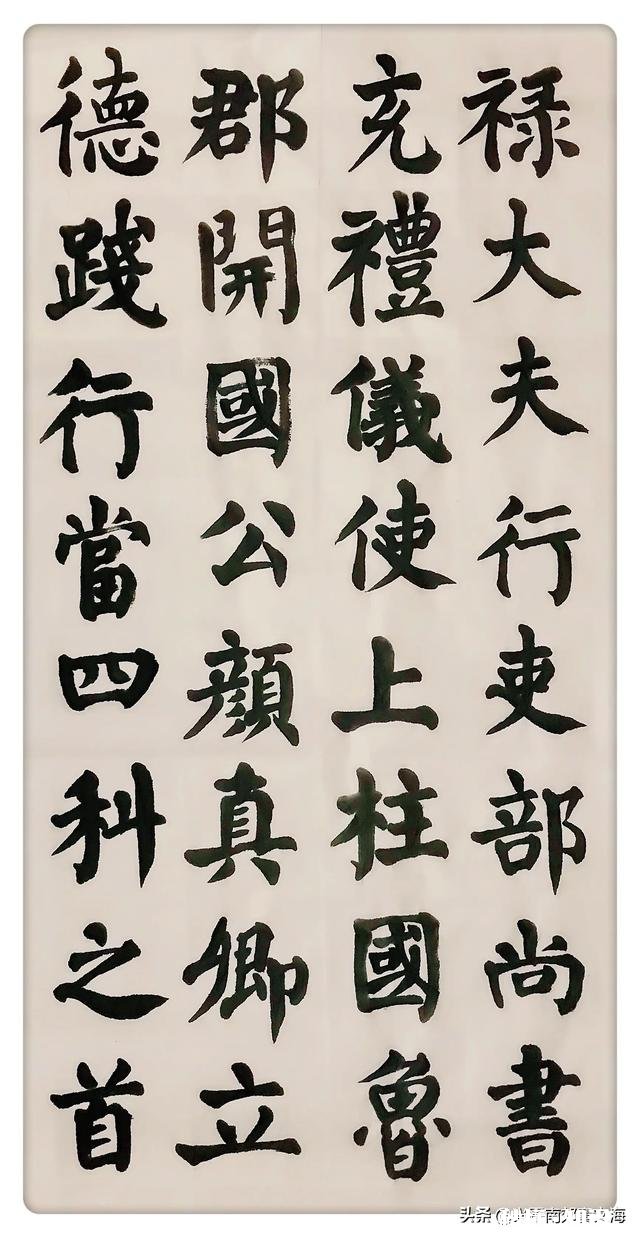 禄大夫行吏部尚書
充禮儀使上柱國魯
郡開國公顔真卿立
德踐行當四科之首
头条